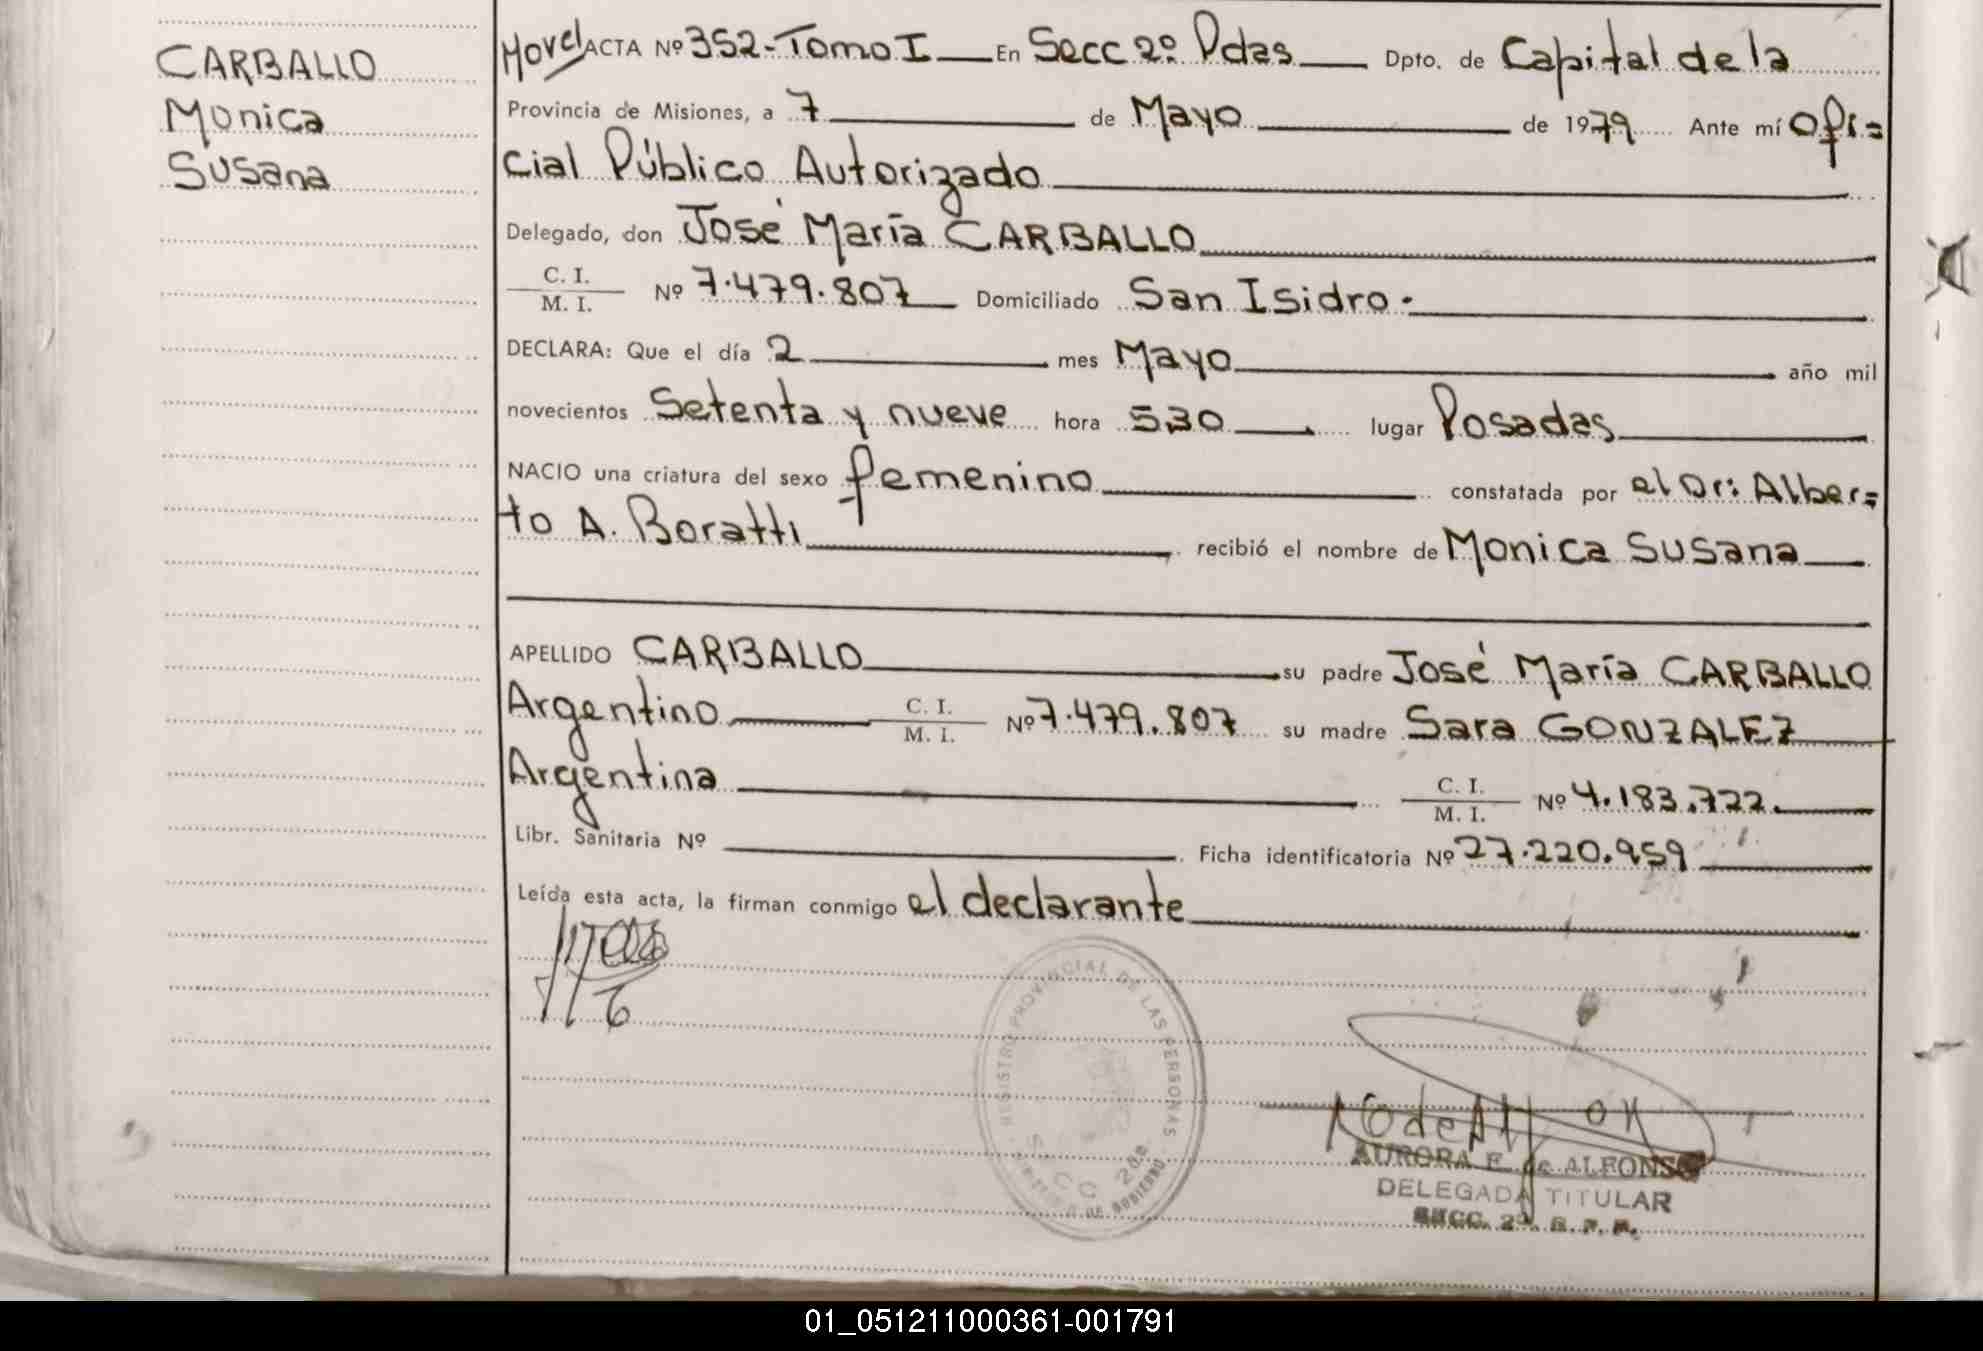 CARBALLO
Monica
Susana
ACTA Nº 352-Tomo I En Secc 2º. Pdas Dpto. de Capital de la
Provincia de Misiones, a 7 de Mayo de 1979 Ante mí Ofi=
cial Público Autorizado
Delegado, don José María CARBALLO
C. I.
M. I. Nº 7.479.807 Domiciliado San Isidro.
DECLARA: Que el día 2 mes Mayo año mil
novecientos Setenta y nueve hora 5,30 lugar Posadas
NACIO una criatura del sexo femenino constatada por el Dr: Alber=
to A. Boratti recibió el nombre de Monica Susana
APELLIDO CARBALLO su padre José María CARBALLO
Argentino C. I.
M. I. Nº 7.479.807 su madre Sara GONZALEZ
Argentina C. I.
M. I. Nº 4.183.722.
Libr. Sanitaria Nº Ficha identificatoria Nº 27.220.959
Leída esta acta, la firman conmigo el declarante
REGISTRO PROVINCIAL DE LAS PERSONAS
SECC 2da
DE GOBIERNO
AURORA E. de ALFONSO
DELEGADA TITULAR
SECC. 2ª R. P. P.
01_051211000361-001791